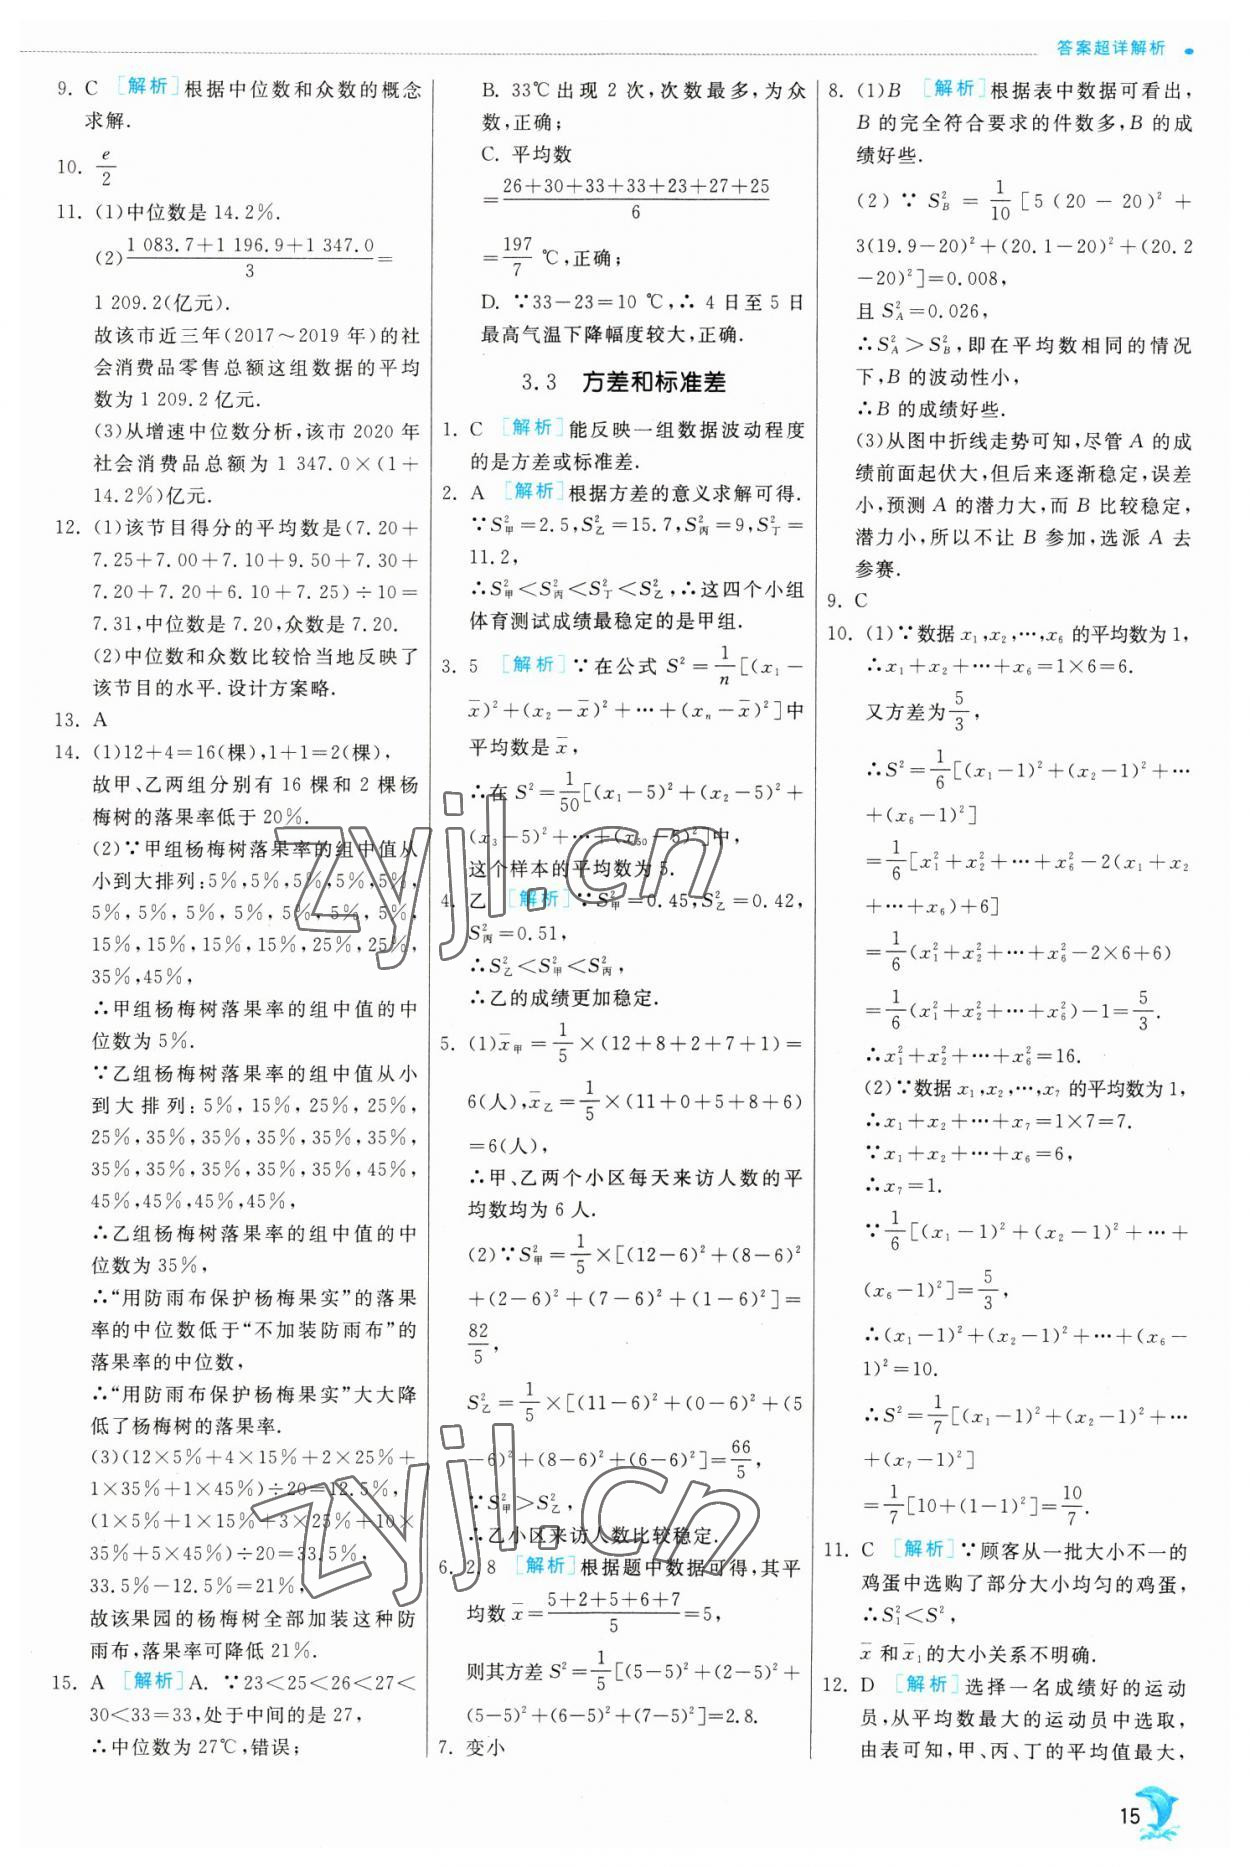 答案超详解析
9. C [解析]根据中位数和众数的概念
求解.
10. e/2
11. (1)中位数是14.2%.
(2)(1 083.7+1 196.9+1 347.0)/3=
1 209.2(亿元).
故该市近三年(2017～2019年)的社
会消费品零售总额这组数据的平均
数为1 209.2亿元.
(3)从增速中位数分析,该市2020年
社会消费品总额为1 347.0×(1+
14.2%)亿元.
12. (1)该节目得分的平均数是(7.20+
7.25+7.00+7.10+9.50+7.30+
7.20+7.20+6.10+7.25)÷10=
7.31,中位数是7.20,众数是7.20.
(2)中位数和众数比较恰当地反映了
该节目的水平.设计方案略.
13. A
14. (1)12+4=16(棵),1+1=2(棵),
故甲、乙两组分别有16棵和2棵杨
梅树的落果率低于20%.
(2)∵甲组杨梅树落果率的组中值从
小到大排列:5%,5%,5%,5%,5%,
5%,5%,5%,5%,5%,5%,5%,
15%,15%,15%,15%,25%,25%,
35%,45%,
∴甲组杨梅树落果率的组中值的中
位数为5%.
∵乙组杨梅树落果率的组中值从小
到大排列:5%,15%,25%,25%,
25%,35%,35%,35%,35%,35%,
35%,35%,35%,35%,35%,45%,
45%,45%,45%,45%,
∴乙组杨梅树落果率的组中值的中
位数为35%,
∴“用防雨布保护杨梅果实”的落果
率的中位数低于“不加装防雨布”的
落果率的中位数,
∴“用防雨布保护杨梅果实”大大降
低了杨梅树的落果率.
(3)(12×5%+4×15%+2×25%+
1×35%+1×45%)÷20=12.5%,
(1×5%+1×15%+3×25%+10×
35%+5×45%)÷20=33.5%,
33.5%-12.5%=21%,
故该果园的杨梅树全部加装这种防
雨布,落果率可降低21%.
15. A [解析]A. ∵23<25<26<27<
30<33=33,处于中间的是27,
∴中位数为27℃,错误;
B. 33℃出现2次,次数最多,为众
数,正确;
C. 平均数
=(26+30+33+33+23+27+25)/6
=197/7 ℃,正确;
D. ∵33-23=10 ℃,∴4日至5日
最高气温下降幅度较大,正确.
3.3 方差和标准差
1. C [解析]能反映一组数据波动程度
的是方差或标准差.
2. A [解析]根据方差的意义求解可得.
∵S²甲=2.5,S²乙=15.7,S²丙=9,S²丁=
11.2,
∴S²甲<S²丙<S²丁<S²乙,∴这四个小组
体育测试成绩最稳定的是甲组.
3. 5 [解析]∵在公式S²=1/n[(x₁-
x̄)²+(x₂-x̄)²+…+(xₙ-x̄)²]中
平均数是x̄,
∴在S²=1/50[(x₁-5)²+(x₂-5)²+
(x₃-5)²+…+(x₅₀-5)²]中,
这个样本的平均数为5.
4. 乙 [解析]∵S²甲=0.45,S²乙=0.42,
S²丙=0.51,
∴S²乙<S²甲<S²丙,
∴乙的成绩更加稳定.
5. (1)x̄甲=1/5×(12+8+2+7+1)=
6(人),x̄乙=1/5×(11+0+5+8+6)
=6(人),
∴甲、乙两个小区每天来访人数的平
均数均为6人.
(2)∵S²甲=1/5×[(12-6)²+(8-6)²
+(2-6)²+(7-6)²+(1-6)²]=
82/5,
S²乙=1/5×[(11-6)²+(0-6)²+(5
-6)²+(8-6)²+(6-6)²]=66/5,
∵S²甲>S²乙,
∴乙小区来访人数比较稳定.
6. 2.8 [解析]根据题中数据可得,其平
均数x̄=(5+2+5+6+7)/5=5,
则其方差S²=1/5[(5-5)²+(2-5)²+
(5-5)²+(6-5)²+(7-5)²]=2.8.
7. 变小
8. (1)B [解析]根据表中数据可看出,
B的完全符合要求的件数多,B的成
绩好些.
(2)∵S²B=1/10[5(20-20)²+
3(19.9-20)²+(20.1-20)²+(20.2
-20)²]=0.008,
且S²A=0.026,
∴S²A>S²B,即在平均数相同的情况
下,B的波动性小,
∴B的成绩好些.
(3)从图中折线走势可知,尽管A的成
绩前面起伏大,但后来逐渐稳定,误差
小,预测A的潜力大,而B比较稳定,
潜力小,所以不让B参加,选派A去
参赛.
9. C
10. (1)∵数据x₁,x₂,…,x₆的平均数为1,
∴x₁+x₂+…+x₆=1×6=6.
又方差为5/3,
∴S²=1/6[(x₁-1)²+(x₂-1)²+…
+(x₆-1)²]
=1/6[x₁²+x₂²+…+x₆²-2(x₁+x₂
+…+x₆)+6]
=1/6(x₁²+x₂²+…+x₆²-2×6+6)
=1/6(x₁²+x₂²+…+x₆²)-1=5/3.
∴x₁²+x₂²+…+x₆²=16.
(2)∵数据x₁,x₂,…,x₇的平均数为1,
∴x₁+x₂+…+x₇=1×7=7.
∵x₁+x₂+…+x₆=6,
∴x₇=1.
∵1/6[(x₁-1)²+(x₂-1)²+…+
(x₆-1)²]=5/3,
∴(x₁-1)²+(x₂-1)²+…+(x₆-
1)²=10.
∴S²=1/7[(x₁-1)²+(x₂-1)²+…
+(x₇-1)²]
=1/7[10+(1-1)²]=10/7.
11. C [解析]∵顾客从一批大小不一的
鸡蛋中选购了部分大小均匀的鸡蛋,
∴S₁²<S²,
x̄和x̄₁的大小关系不明确.
12. D [解析]选择一名成绩好的运动
员,从平均数最大的运动员中选取,
由表可知,甲、丙、丁的平均值最大,
15
zyjl.cn
zyjl.cn